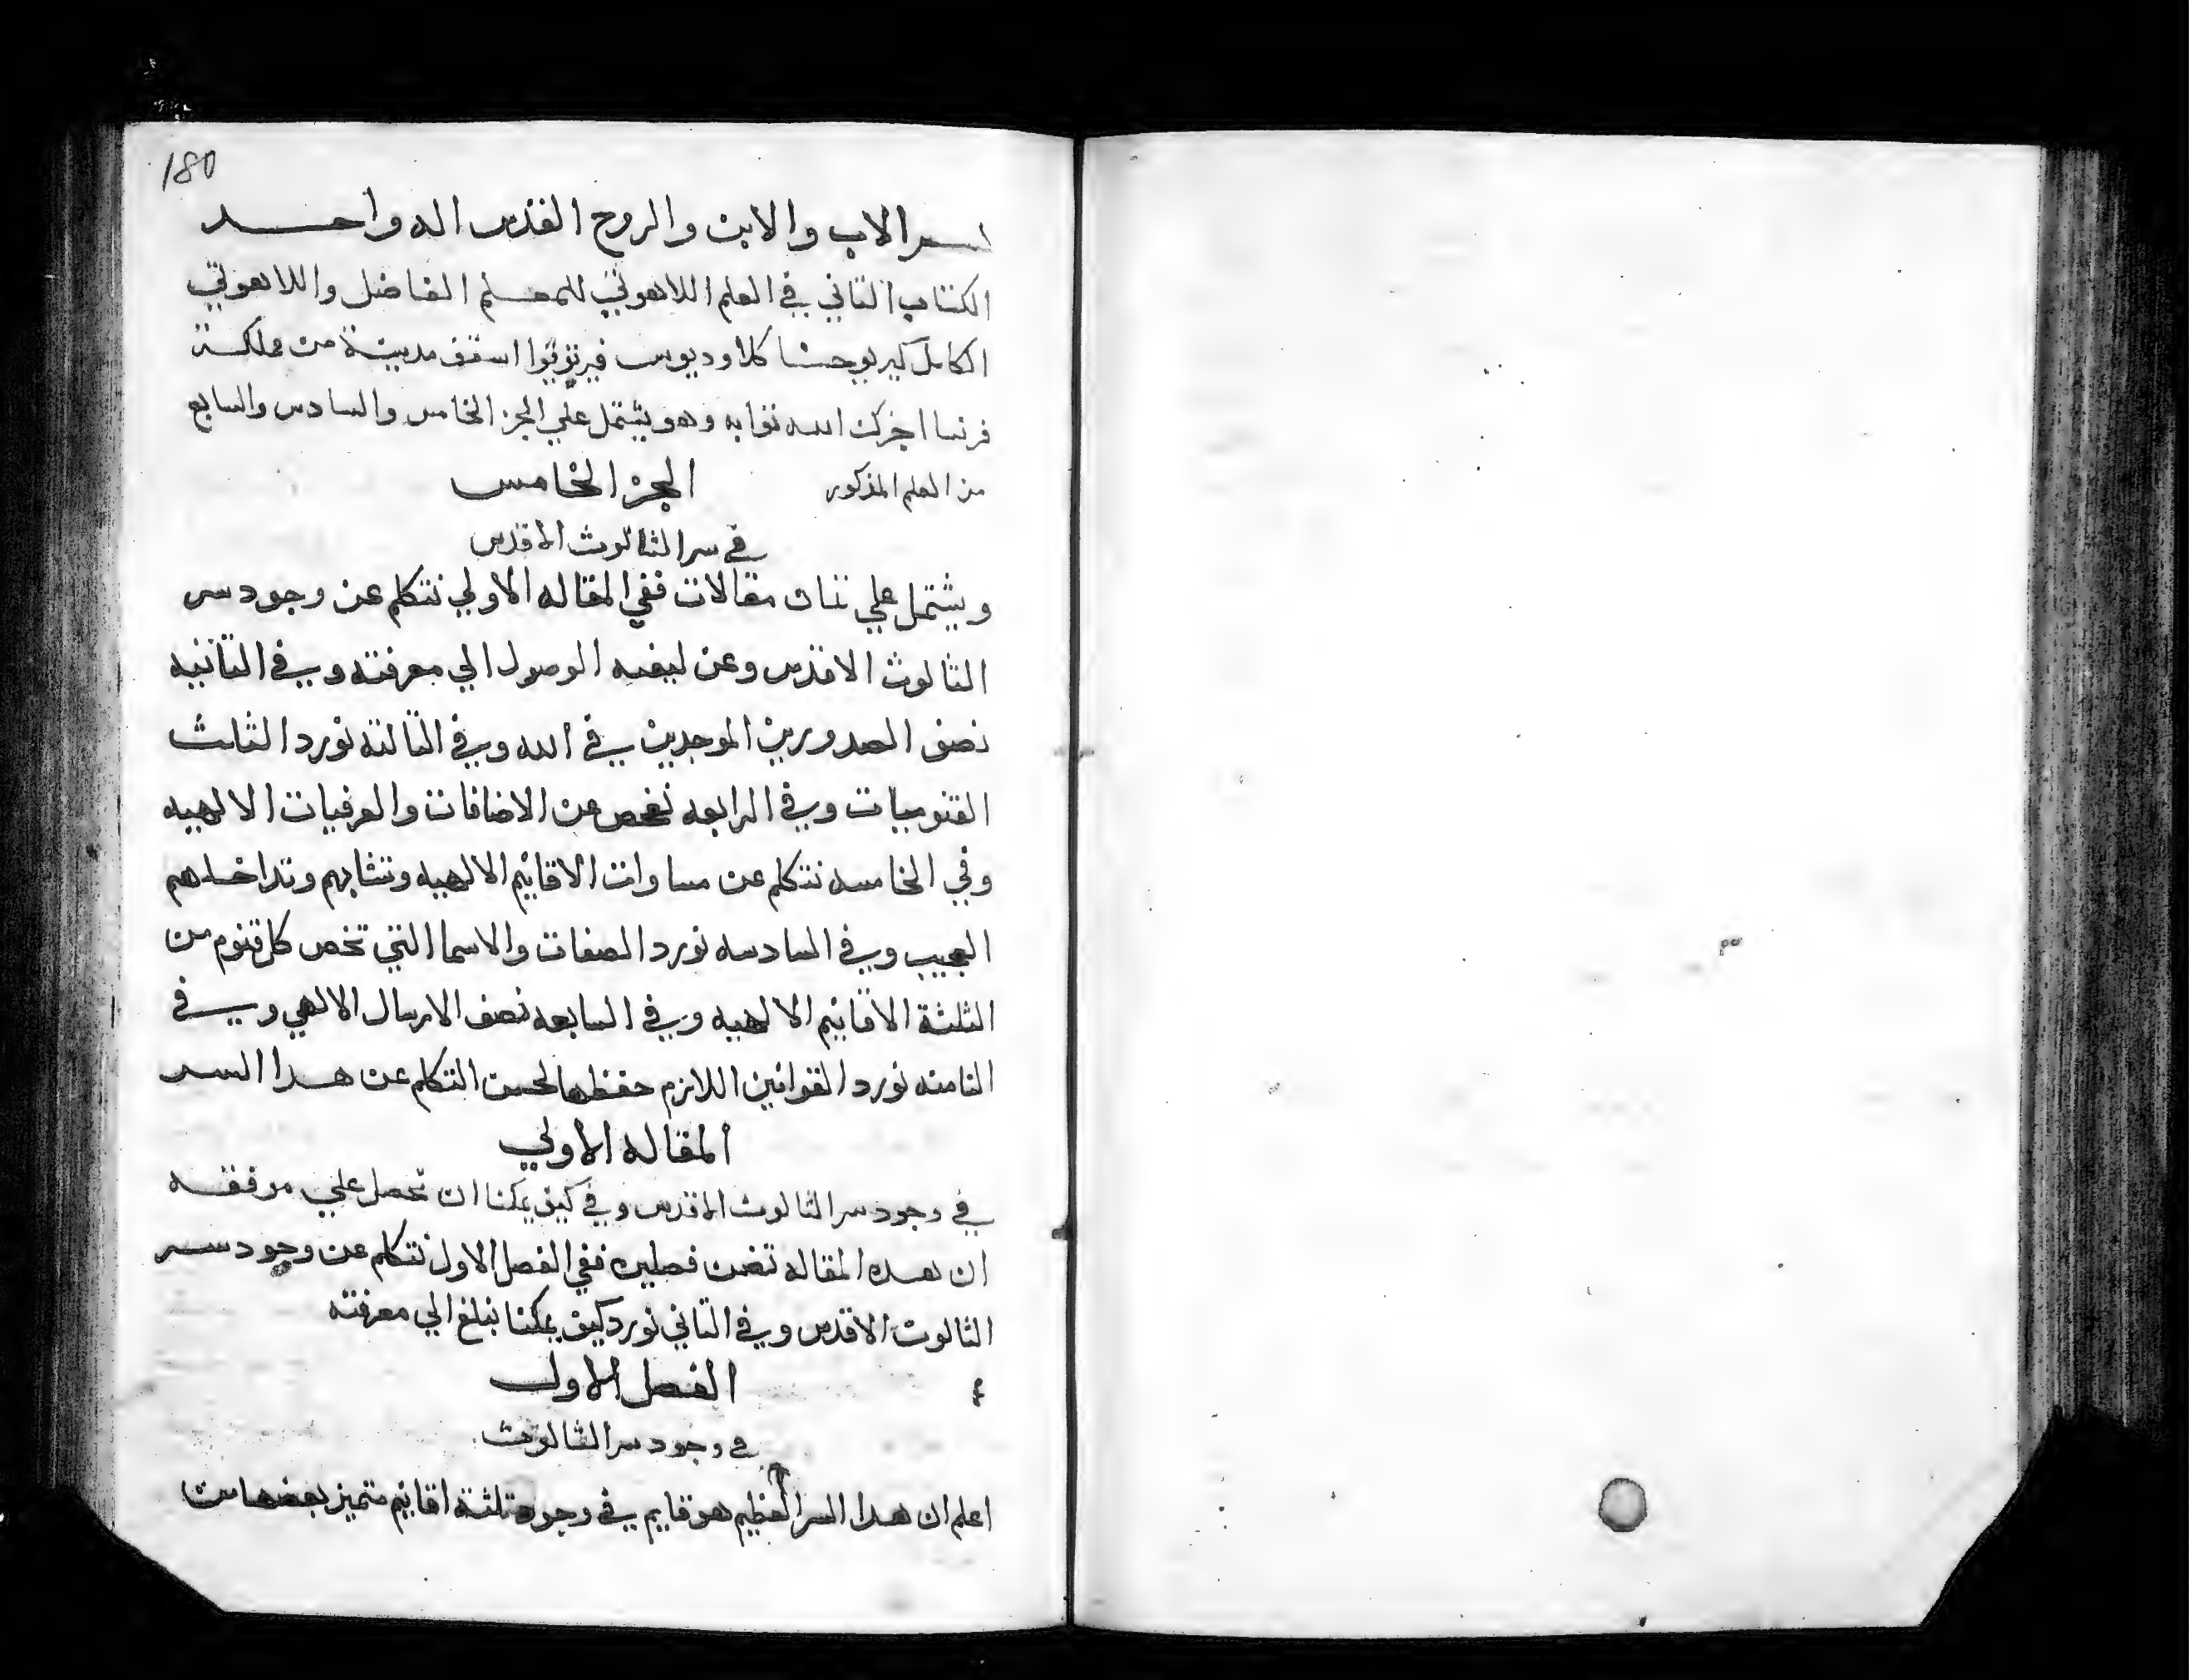 180
بسم الاب والابن والروح القدس اله واحد
الكتاب التاني في العلم اللاهوتي للمعلم الفاضل واللاهوتي
الكامل كير يوحنا كلاوديوس اسقف مدينة من مملكة
فرنسا الله توابه وهو يشتمل علي الجز الخامس والسادس والسابع
من العلم المذكور الجز الخامس
في سر الثالوث الاقدس
ويشتمل علي تمان مقالات ففي المقاله الاولي نتكلم عن وجود سر
الثالوث الاقدس وعن كيفيه الوصول الي معرفته وفي التانيه
نصف الصدورين الموجدين في الله وفي التالته نورد الثلث
القنوميات وفي الرابعه نفحص عن الاضافات والعرفيات الالهيه
وفي الخامسه نتكلم عن مساوات الاقانيم الالهيه وتشابهم وتداخلهم
العجيب وفي السادسه نورد الصفات والاسما التي تخص كل قنوم من
الثلثة الاقانيم الالهيه وفي السابعه نصف الارسال الالهي وفي
التامنه نورد القوانين اللازم حفظها لحسن التكلم عن هدا السر
المقاله الاولي
في وجود سر الثالوث الاقدس وفي كيف يمكنا ان نحصل علي معرفته
ان هده المقاله تضمن فصلين ففي الفصل الاول نتكلم عن وجود سر
الثالوث الاقدس وفي التاني نورد كيف يمكنا نبلغ الي معرفته
الفصل الاول
في وجود سر الثالوث
اعلم ان هدا السر العظيم هو قايم في وجود تلثة اقانيم متميز بعضها من